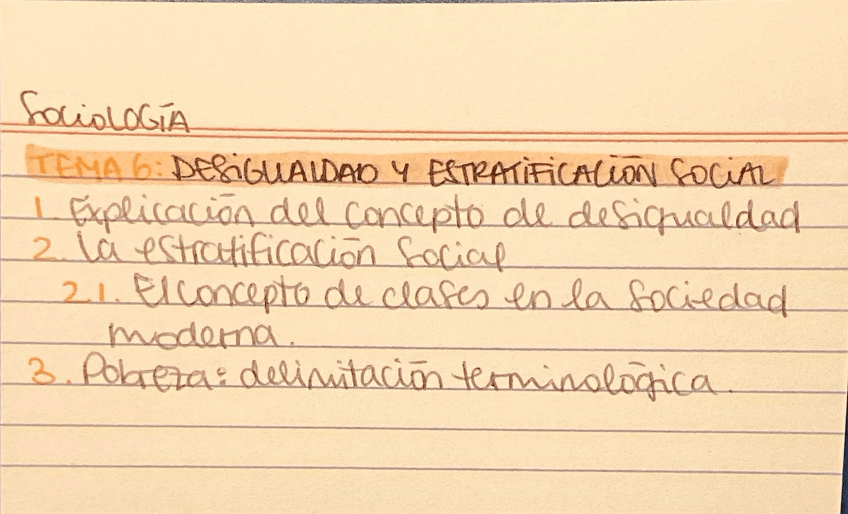 Sociología
TEMA 6: DESIGUALDAD Y ESTRATIFICACIÓN SOCIAL
1. Explicación del concepto de desigualdad
2. La estratificación social
2.1. El concepto de clases en la sociedad
moderna.
3. Pobreza: delimitación terminológica.